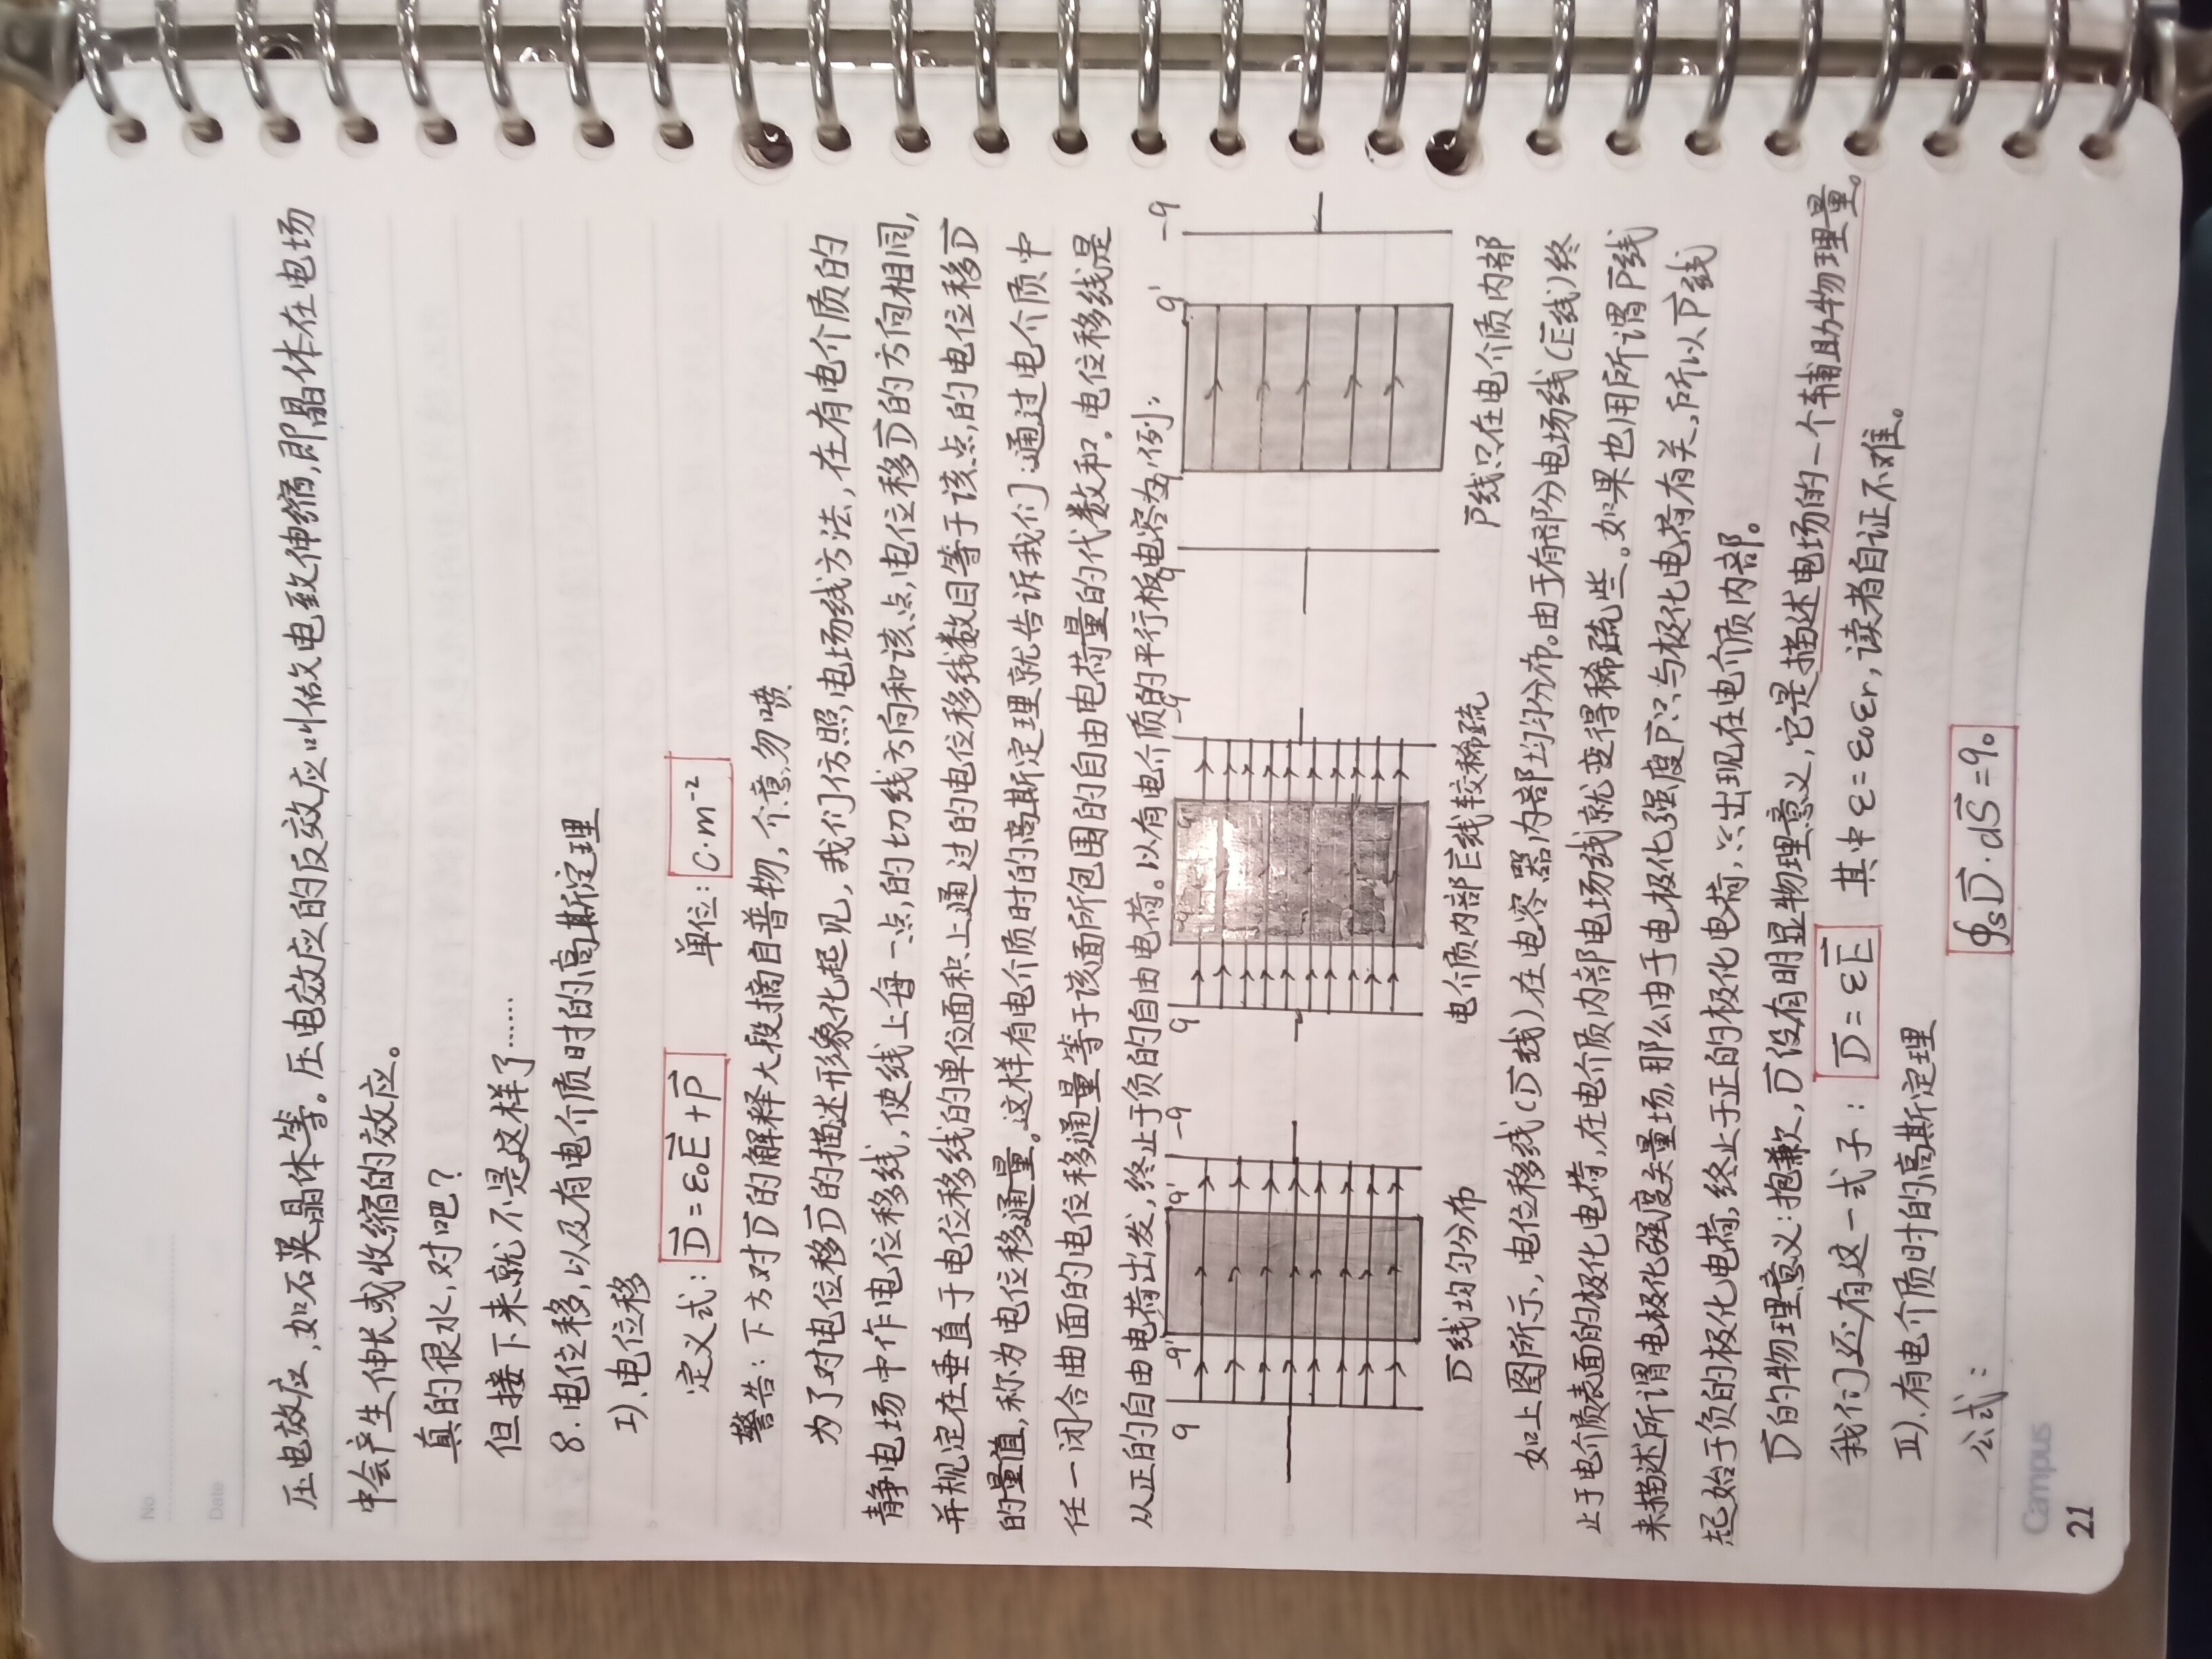 No
Date
压电效应,如石英晶体等。压电效应的反效应叫做电致伸缩,即晶体在电场
中会产生伸长或收缩的效应。
真的很水,对吧?
但接下来就不是这样了……
8.电位移,以及有电介质时的高斯定理
I).电位移
定义式: D⃗=ε₀E⃗+P⃗ 单位: C·m⁻²
警告:下方对D⃗的解释大段摘自普物,介意勿喷
为了对电位移D⃗的描述形象化起见,我们仿照电场线方法,在有电介质的
静电场中作电位移线,使线上每一点的切线方向和该点电位移D⃗的方向相同,
并规定在垂直于电位移线的单位面积上通过的电位移线数目等于该点的电位移D⃗
的量值,称为电位移通量。这样有电介质时的高斯定理就告诉我们:通过电介质中
任一闭合曲面的电位移通量等于该面所包围的自由电荷量的代数和。电位移线是
从正的自由电荷出发,终止于负的自由电荷。以有电介质的平行板电容为例:
q -q' q' -q
q -q' q' -q
q -q' q' -q
D⃗线均匀分布 电介质内部E⃗线较稀疏 P⃗线只在电介质内部
如上图所示,电位移线(D⃗线)在电容器内部均匀分布。由于有部份电场线(E⃗线)终
止于电介质表面的极化电荷,在电介质内部电场线就变得稀疏些。如果也用所谓P⃗线
来描述所谓电极化强度矢量场,那么由于电极化强度P⃗只与极化电荷有关,所以P⃗线
起始于负的极化电荷,终止于正的极化电荷,只出现在电介质内部。
D⃗的物理意义:抱歉,D⃗没有明显物理意义,它是描述电场的一个辅助物理量。
我们还有这一式子: D⃗=εE⃗ 其中ε=ε₀εr,读者自证不难。
II).有电介质时的高斯定理
公式: ∮ₛD⃗·dS⃗=q₀
Campus
21